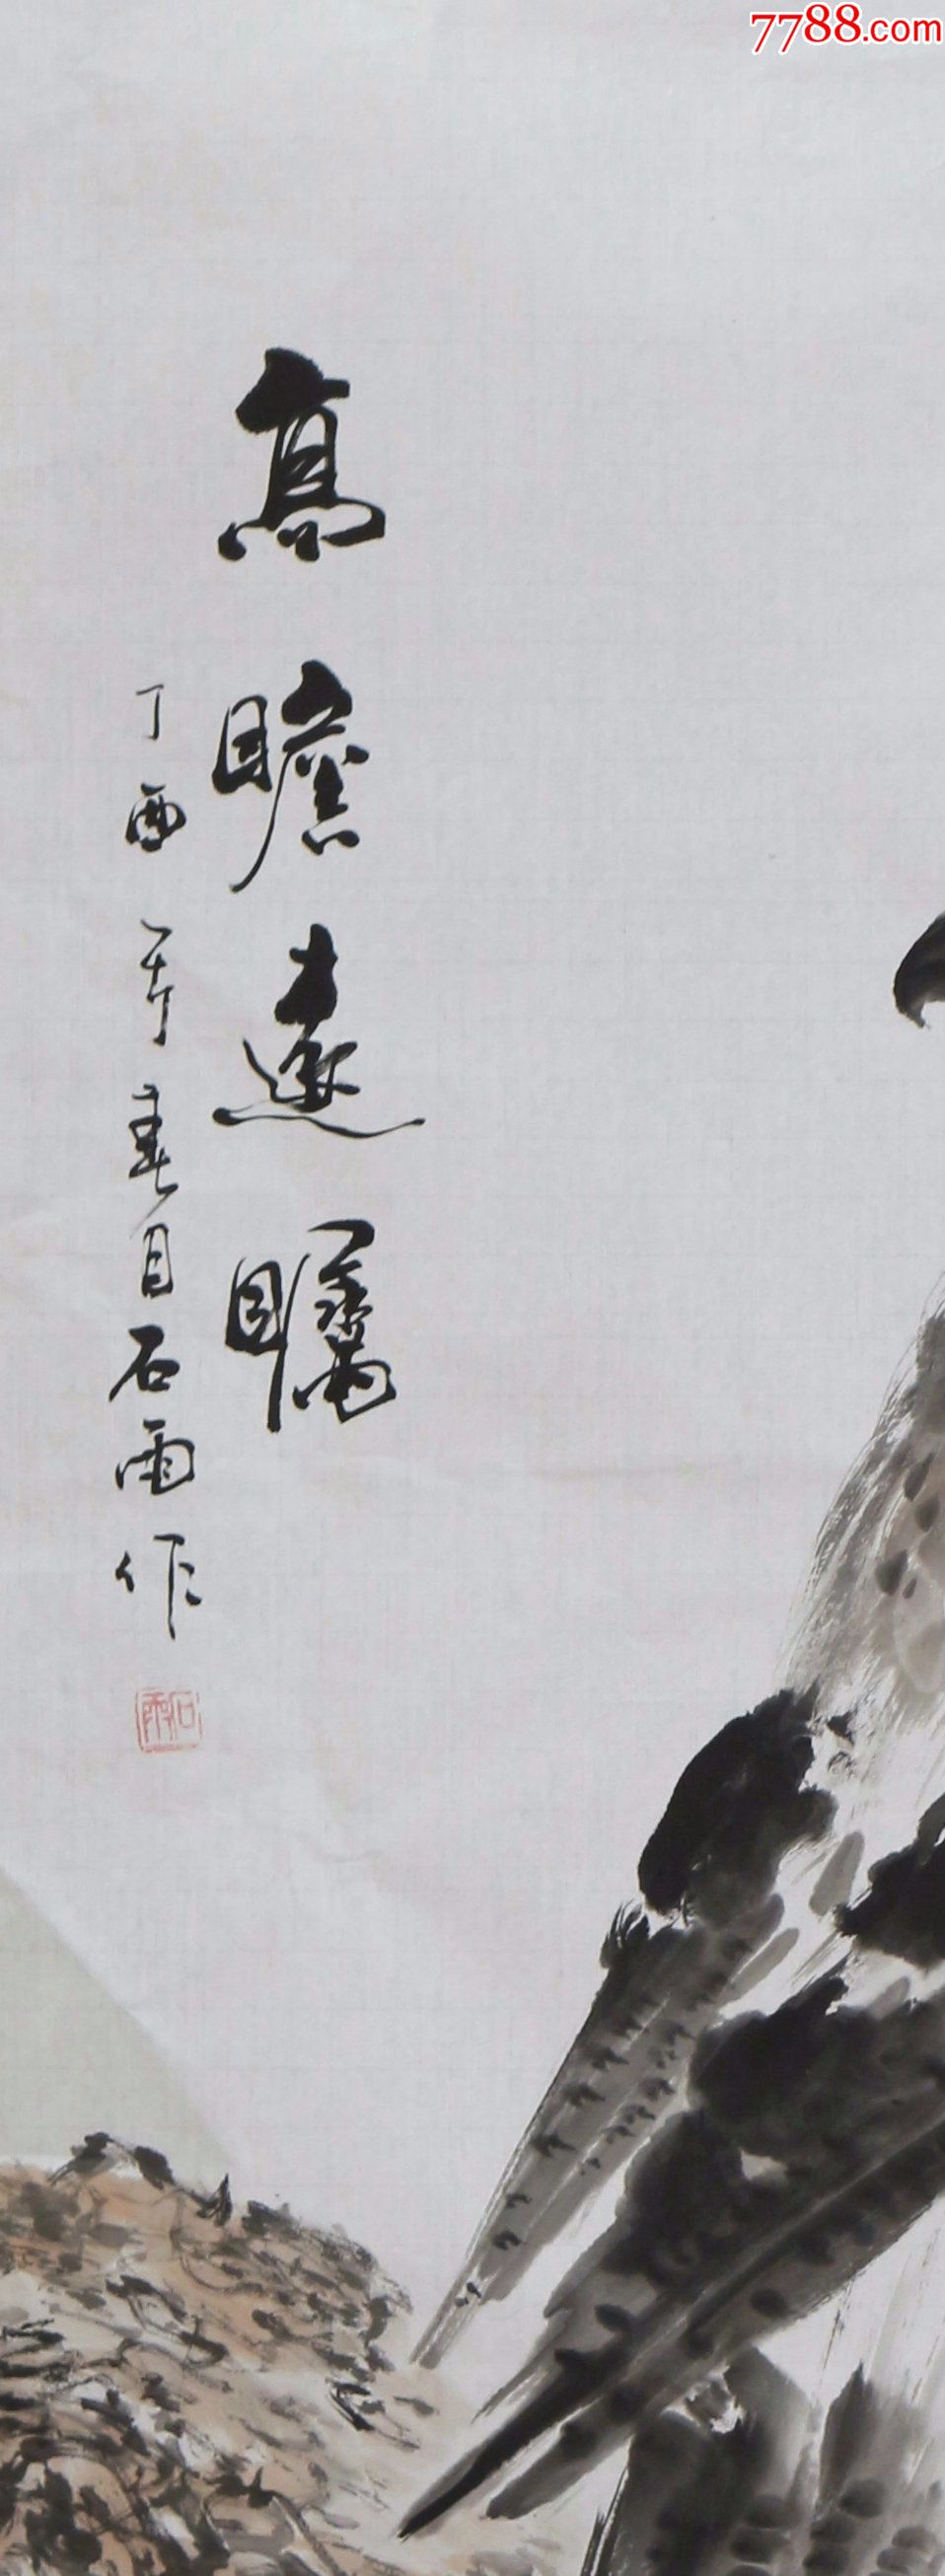 7788.com
高瞻遠矚
丁酉年春月石雨作
石雨